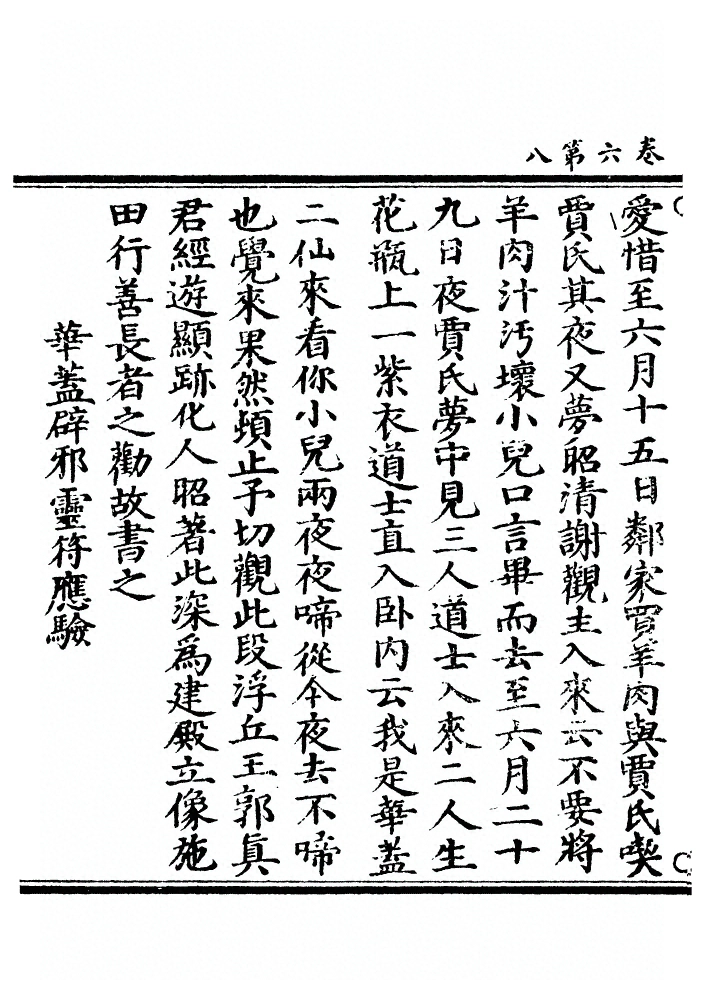 卷六第八
愛惜至六月十五日鄰家買羊肉與賈氏喫
賈氏其夜又夢昭清謝觀主入來云不要將
羊肉汁汚壞小兒口言畢而去至六月二十
九日夜賈氏夢中見三人道士入來二人生
花瓶上一紫衣道士直入卧内云我是華蓋
二仙來看你小兒兩夜夜啼從今夜去不啼
也覺來果然頓止予切觀此段浮丘王郭眞
君經遊顯跡化人昭著此深為建殿立像施
田行善長者之勸故書之
華蓋辟邪靈符應驗